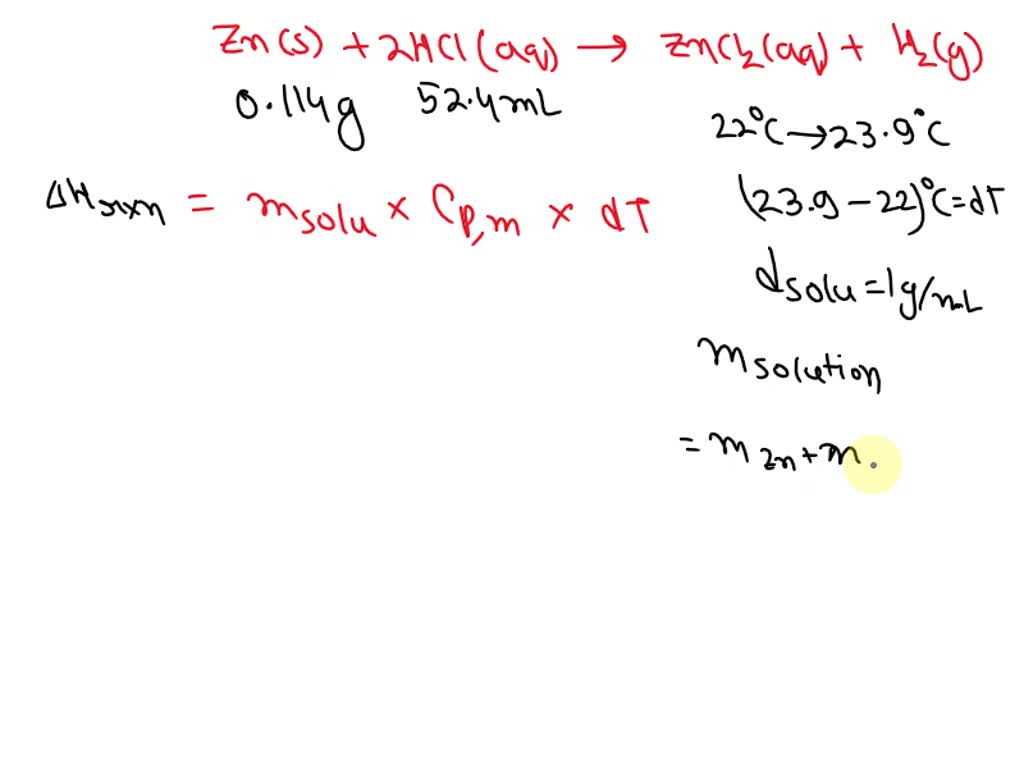 Zn(s) + 2HCl(aq) → ZnCl₂(aq) + H₂(g)
0.114g 52.4mL
22°C → 23.9°C
ΔHrxn = msolu × Cp,m × dT
(23.9 – 22)°C = dT
dsolu = 1g/mL
msolution
= mZn + m